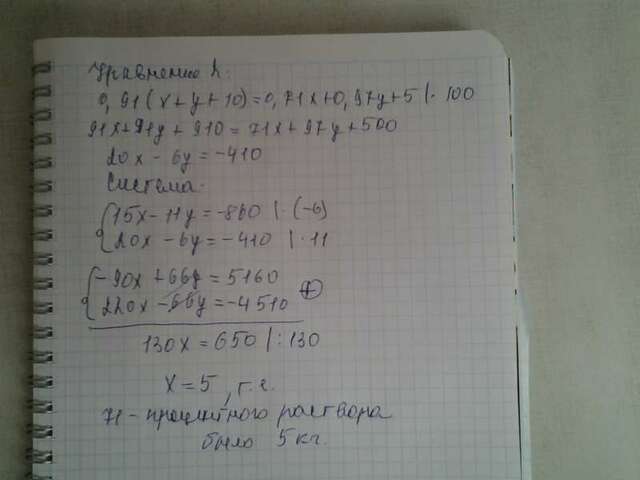 Уравнение 2:
0,91(x+y+10)=0,71x+0,97y+5 |· 100
91x+91y+910=71x+97y+500
20x-6y=-410
Система:
{15x-11y=-860 |· (-6)
{20x-6y=-410 |· 11
{-90x+66y=5160
{220x-66y=-4510 ⊕
130x=650 |:130
x=5, т.е.
71-процентного раствора
было 5 кг.